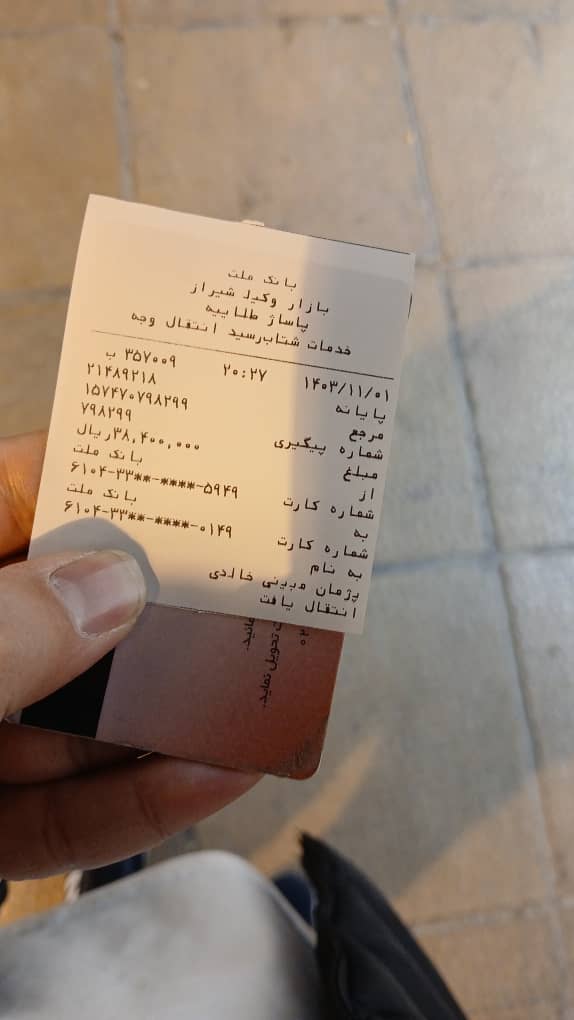 بانک ملت
بازار وکیل شیراز
پاساژ طلاییه
خدمات شتاب‌رسید انتقال وجه
۱۴۰۳/۱۱/۰۱ ۲۰:۲۷
پایانه ۳۵۷۰۰۹ ب
مرجع ۲۱۴۸۹۲۱۸
شماره پیگیری ۱۵۷۴۷۰۷۹۸۲۹۹
۷۹۸۲۹۹
مبلغ ۳۸,۴۰۰,۰۰۰ریال
از بانک ملت
شماره کارت ۶۱۰۴-۳۳**-****-۵۹۴۹
به بانک ملت
شماره کارت ۶۱۰۴-۳۳**-****-۰۱۴۹
به نام
پژمان مبینی خالدی
انتقال یافت
تحویل نماید.